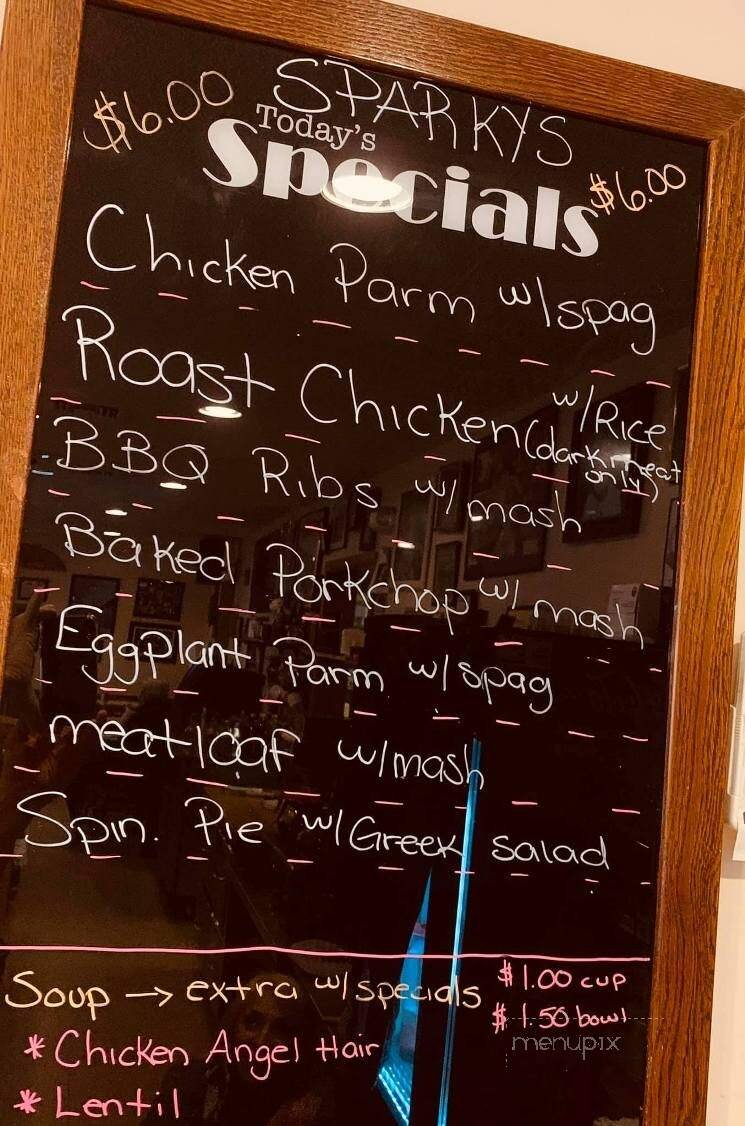 SPARKYS
$6.00 Today's $6.00
Specials
Chicken Parm w/spag
Roast Chicken w/Rice
(dark meat
only)
BBQ Ribs w/ mash
Baked Porkchop w/ mash
Eggplant Parm w/spag
meatloaf w/mash
Spin. Pie w/Greek salad
Soup → extra w/specials $1.00 cup
$1.50 bowl
* Chicken Angel Hair
menupix
* Lentil